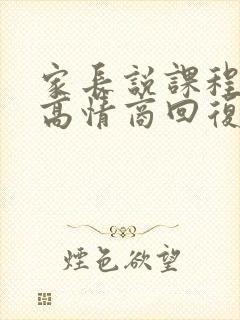 家長說課程
高情商回復
煙色欲望